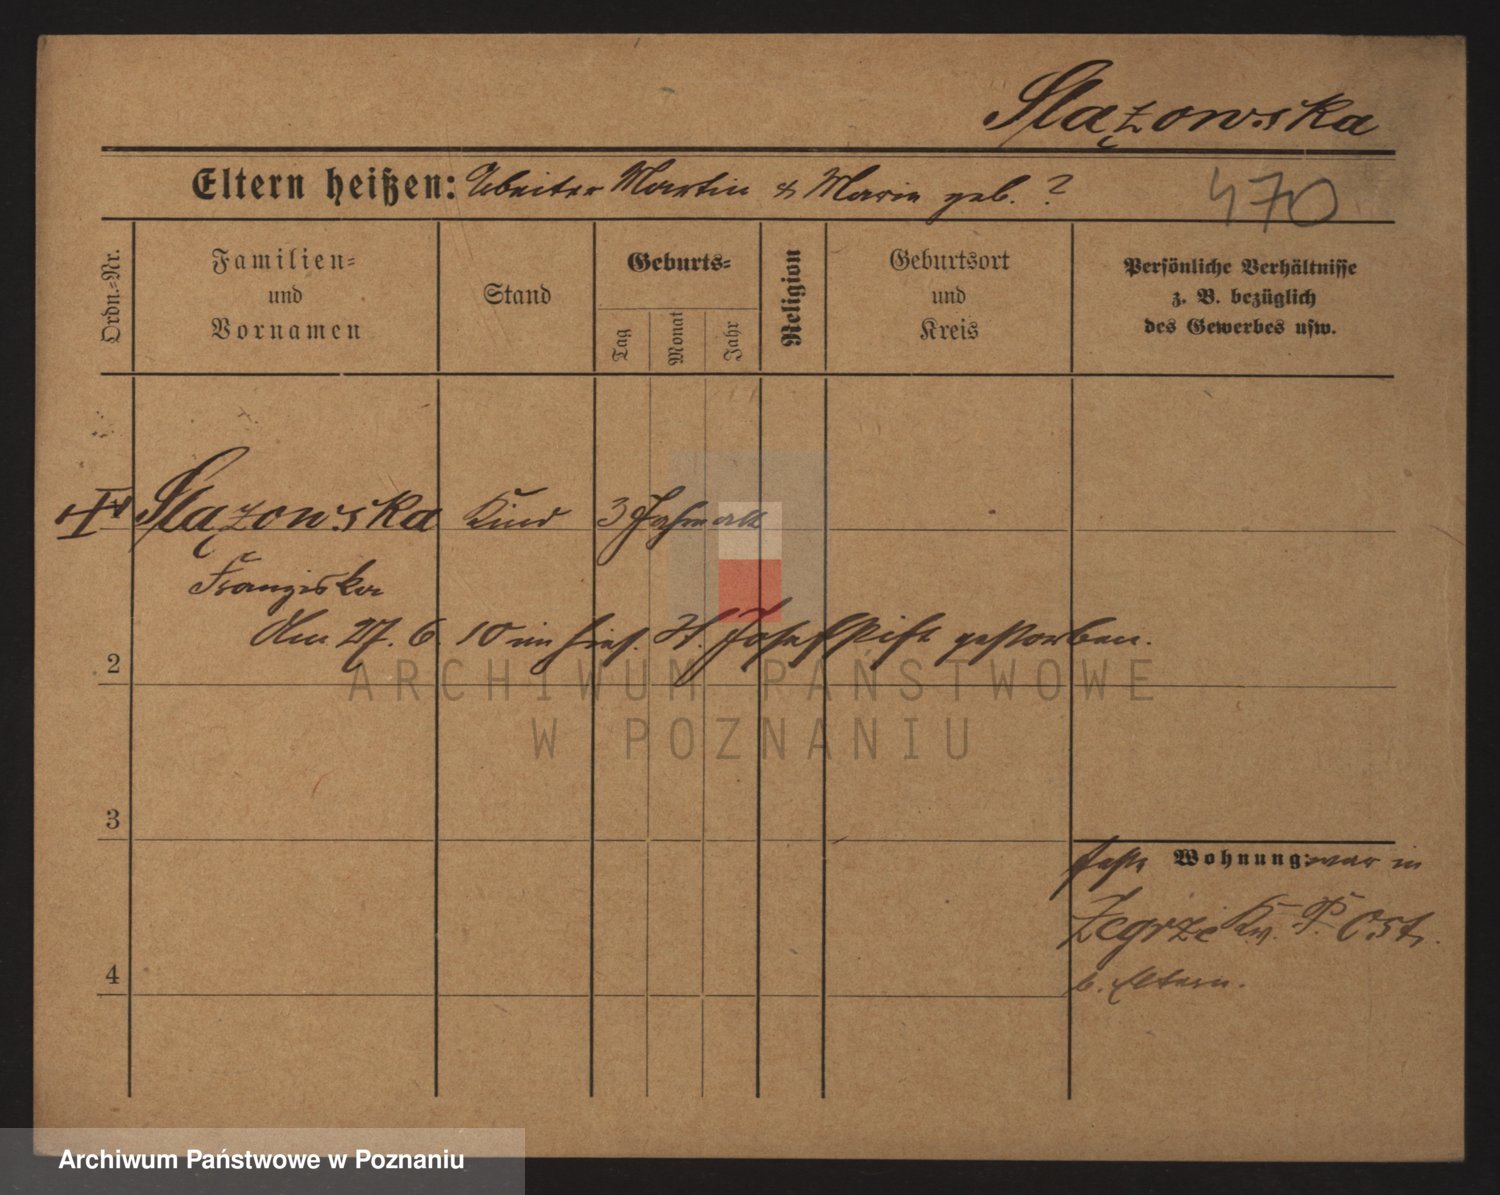 Slązowska
Eltern heißen: Arbeiter Martin & Marie geb. ?
470
Ordn.-Nr.
Familien-
und
Vornamen
Stand
Geburts-
Tag
Monat
Jahr
Religion
Geburtsort
und
Kreis
Persönliche Verhältnisse
z. B. bezüglich
des Gewerbes usw.
Slązowska Kind 3 Jahre alt
Franziska
Am 27. 6. 10 im hies. St. Josefstift gestorben.
2
ARCHIWUM PAŃSTWOWE
W POZNANIU
3
feste Wohnung: war in
Żegrze Kr. P. Ost.
4
b. Eltern.
Archiwum Państwowe w Poznaniu